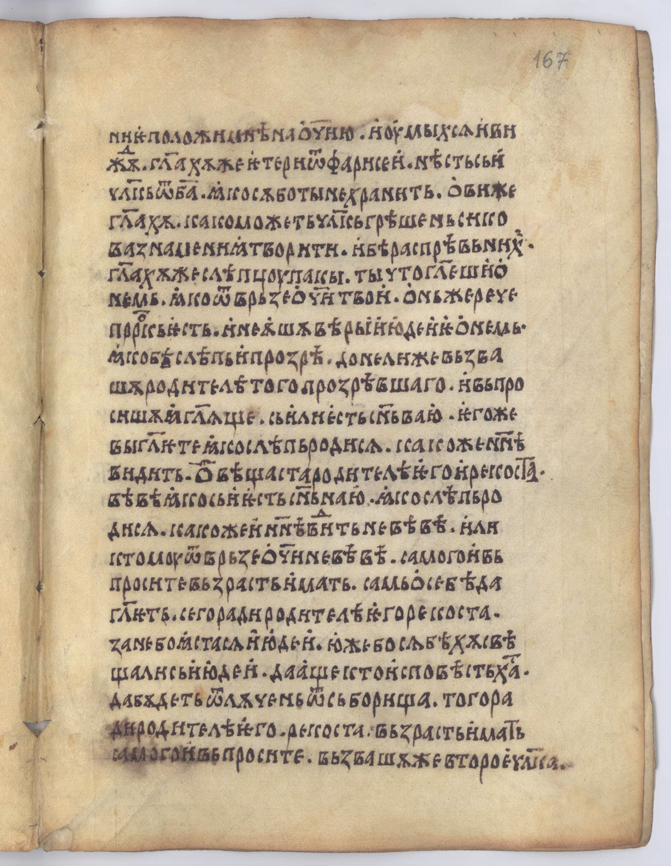 167
ниѥ положи мнѣ на ѻ҆чїю · и҆ оумыхсѧ и҆ ви
жⷣѫ · гл҃ахѫ же ѥтери ѿ фарисеи · нѣсть сьи
чл҃кь ѿ б҃а · ꙗко сѫботы не хранить · ѻви же
гл҃ахѫ · како можеть чл҃кь грѣшень сико
ва знамениꙗ творити · и҆ бѣ распрѣ вь нихь ·
гл҃ахѫ же слѣпцоу пакы · ты что гл҃еши ѻ
немь · ꙗко ѿврьзе ѻчи твои · ѻнь же рече
пррⷪ҇кь ѥсть · и҆ не ѩшѫ вѣры июдеи ѥ ѻ немь ·
ꙗко бѣ слѣпь и прозрѣ · донелиже вьзва
шѫ родителѣ того прозрѣвшаго · и вьпро
сишѫ ꙗ гл҃ѧще · сьи ли ѥсть сн҃ь ваю · ѥгоже
вы гл҃ѥте ꙗко слѣпь родисѧ · како же нн҃ѣ
видить · ѿвѣщаста родителѣ ѥго и рекостⷶа ·
вѣвѣ ꙗко сьи ѥсть сн҃ь наю · ꙗко слѣпь ро
дисѧ · како же и нн҃ѣ виⷣть не вѣвѣ · или
кто моу ѿврьзе ѻчи не вѣвѣ · самого и вь
просите вьзрасть имать · самь ѻ себѣ да
гл҃ѥть · сего ради родителѣ ѥго рекоста ·
зане боꙗстасѧ июдеи · юже бо сѧ бѣхѫ свѣ
щали сьи июдеи · да аще кто исповѣсть хⷭ҇а ·
да бѫдеть ѿлѫчень ѿ сьборища · того ра
ди родителѣ ѥго · рекоста · вьзрасть иматⸯь
самого и вьпросите · вьзвашѫ же второѥ чл҃ка ·